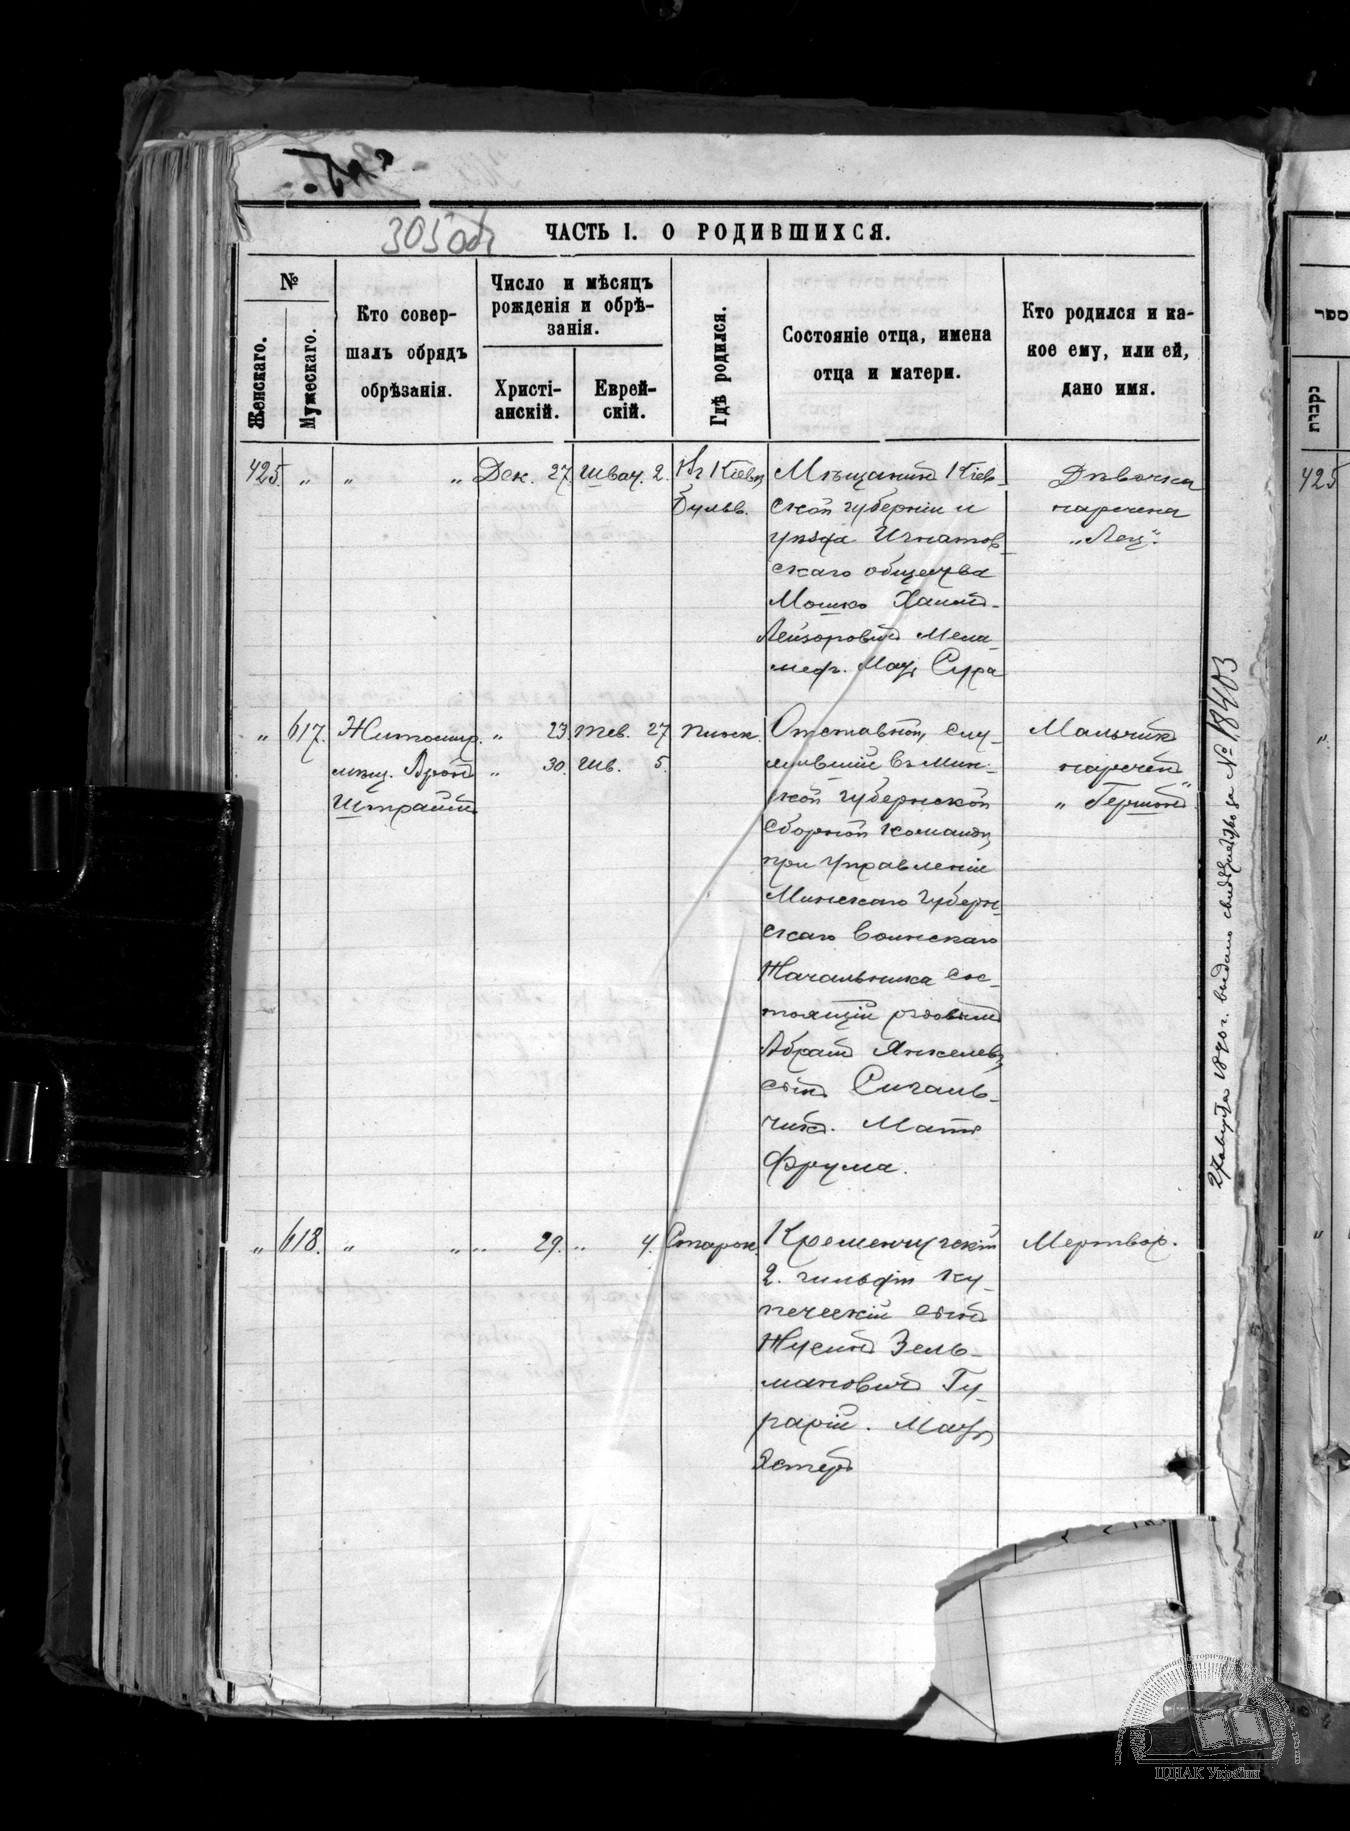 305об
ЧАСТЬ I. О РОДИВШИХСЯ.
№
Женскаго.
Мужескаго.
Кто совер-
шалъ обрядъ
обрѣзанія.
Число и мѣсяцъ
рожденія и обрѣ-
занія.
Христі-
анскій.
Еврей-
скій.
Гдѣ родился.
Состояніе отца, имена
отца и матери.
Кто родился и ка-
кое ему, или ей,
дано имя.
425. „ „ „ Дек. 27. Шват. 2. Кіевѣ
Бульв.
Мѣщанинъ Кіев-
ской губерніи и
уѣзда Игнатов-
скаго общества
Мошко Хаимъ-
Лейзоровичъ Мела-
медъ. Мать Сура
Дѣвочка
наречена
„Лея“.
„ 617. Житомир. „ 23. Тев. 27. Плоск.
мѣщ. Аронъ „ 30. Шв. 5.
Штраймъ
Отставной, слу-
жившій въ Мин-
ской губернской
сборной команды
при управленіи
Минскаго губерн-
скаго воинскаго
Начальника сос-
тоящій рядовымъ
Абрамъ Янкелевъ
сынъ Сигаль-
чикъ. Мать
Фрума.
Мальчикъ
нареченъ
„Гершонъ“
„ 618. „ „ „ 29. „ 4. Старок.
Кременчугскій
2. гильдіи ку-
печескій сынъ
Нусинъ Зель-
мановичъ Гу-
рарій. Мать
Эстеръ
Мертвор.
выдано свидѣтельство за № 18403
נקבות
425
ЦДІАК України